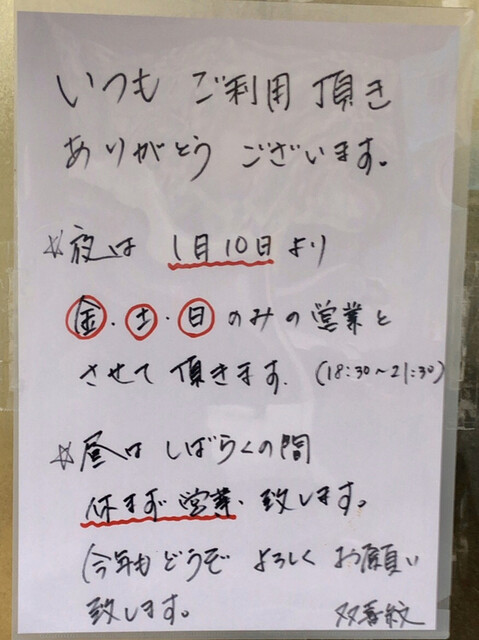 いつも ご利用 頂き
ありがとう ございます。
☆夜は 1月10日より
金・土・日のみの営業と
させて頂きます.(18:30〜21:30)
☆昼は しばらくの間
休まず営業致します。
今年もどうぞ よろしく お願い
致します。 双喜紋